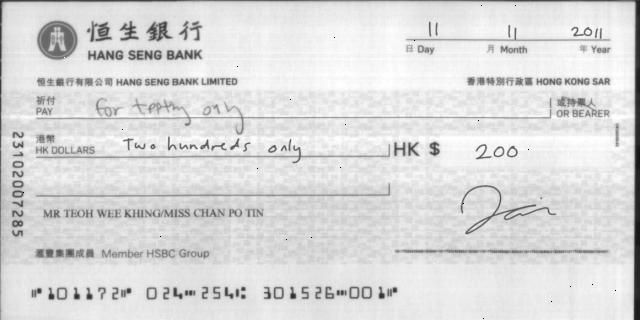 恒生銀行
HANG SENG BANK
11 11 2011
日 Day 月 Month 年 Year
恒生銀行有限公司 HANG SENG BANK LIMITED 香港特別行政區 HONG KONG SAR
祈付
PAY For only 或持票人
OR BEARER
港幣
HK DOLLARS Two hundreds only HK $ 200
23102007285
MR TEOH WEE KHING/MISS CHAN PO TIN
滙豐集團成員 Member HSBC Group
⑈101172⑈ 024⑉254⑆ 301526⑉001⑈